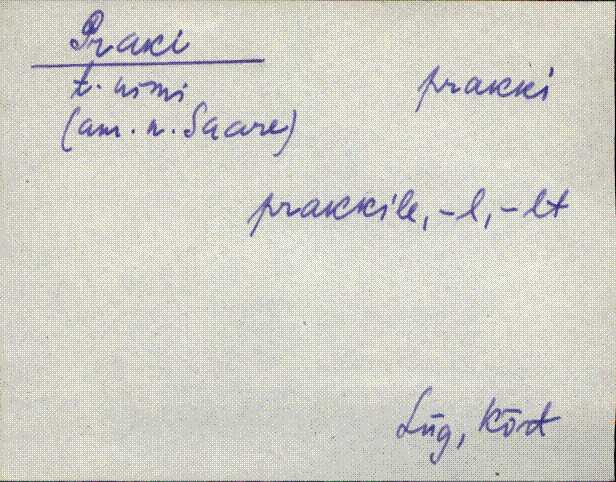 Praki
t. nimi
prakki
(am. n. Saare)
prakkile, -l, -lt
Lüg, Kõrt